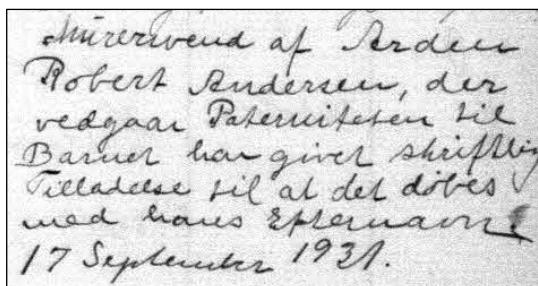 Murersvend af Arden
Robert Andersen, der
vedgaar Paterniteten til
Barnet har givet skriftlig
Tilladelse til at det døbes
med hans Efternavn.
17 September 1931.